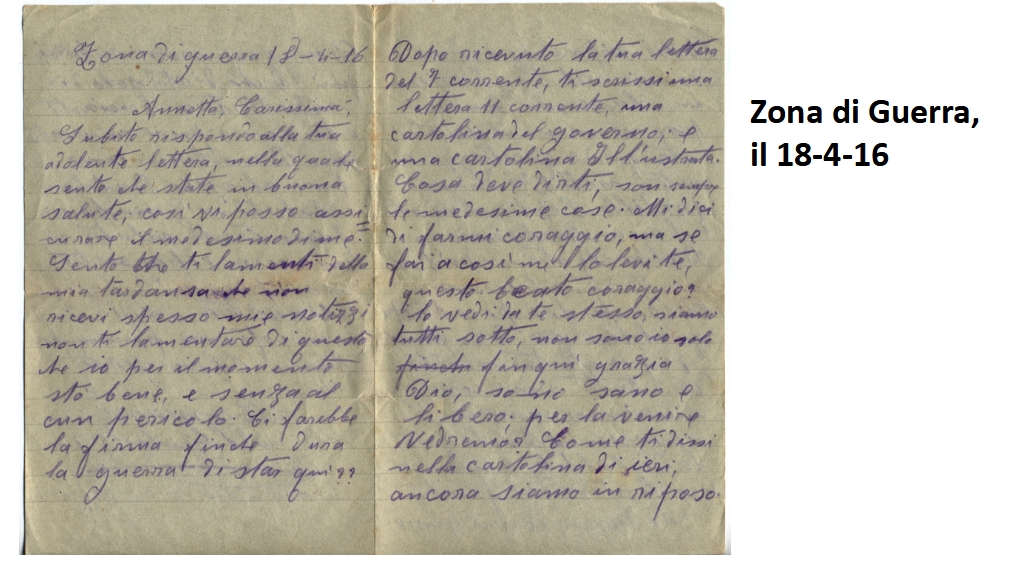 Zona di guerra 18-4-16
Annetta, Caressima;
Subito rispondo alla tua
adolente lettera, nella quale
sento che state in buona
salute, così vi posso assi
curare il medesimo di me.
Sento che ti lamenti della
mia tardansa che non
ricevi spesso mie notizzi
non ti lamentare di questo
che io per il momento
stò bene, e senza al
cun pericolo. Ci farebbe
la firma finche dura
la guerra di star qui??
Dopo ricevuto la tua lettera
del 7 corrente, ti scrissi una
lettera 11 corrente, una
cartolina del governo, e
una cartolina Ill'ustrata.
Cosa deve dirti, son sempre
le medesime cose. Mi dici
di farmi coraggio, ma se
fai a cosi me lo levi te,
questo beato coraggio?
lo vedi da te stesso, siamo
tutti sotto, non sono io solo
finche fin qui grazia
Dio, so no sano e
libero; per la venire
Vedremo? Come ti dissi
nella cartolina di ieri,
ancora siamo in riposo.
Zona di Guerra,
il 18-4-16